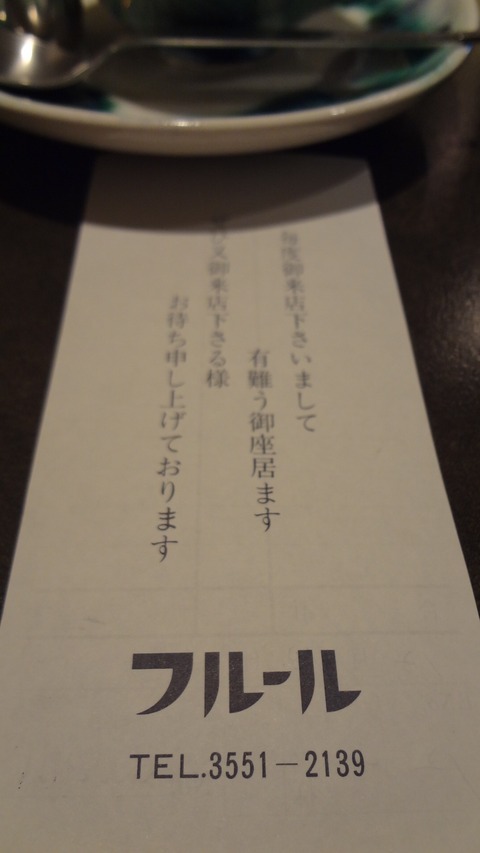 毎度御来店下さいまして
有難う御座居ます
又御来店下さる様
お待ち申し上げております
フルール
TEL.3551-2139